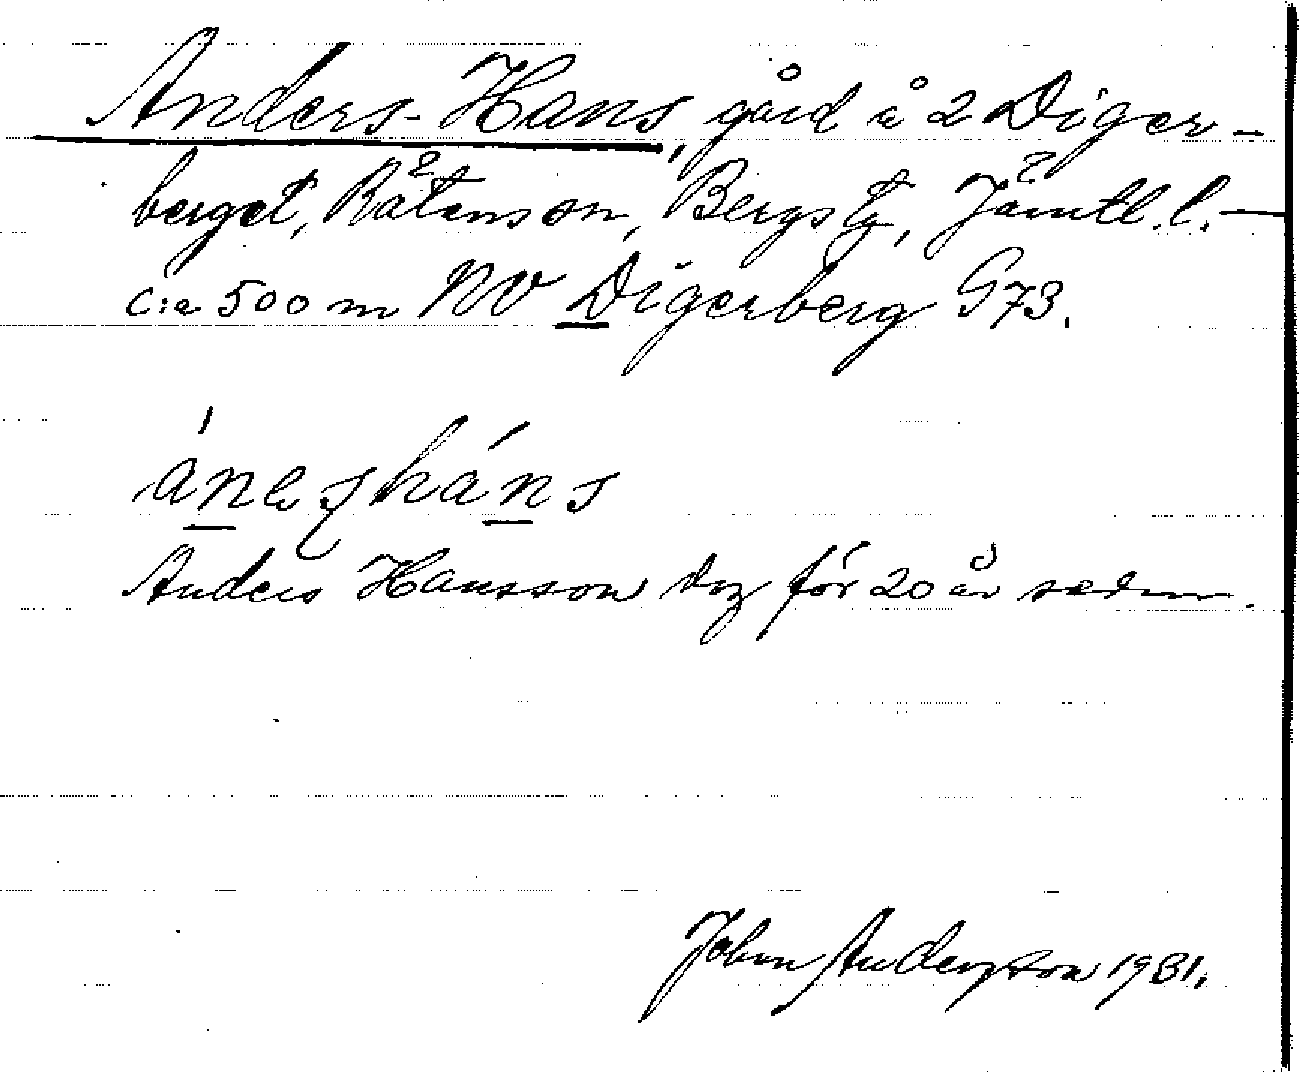 Anders-Hans, gård å 2 Diger-
berget, Rätansn, Bergs tg, Jämtl. l. —
c:a 500 m NV Digerberg G73.
ánesháns
Anders Hansson dog för 20 år sedan.
John Anderzson 1931.